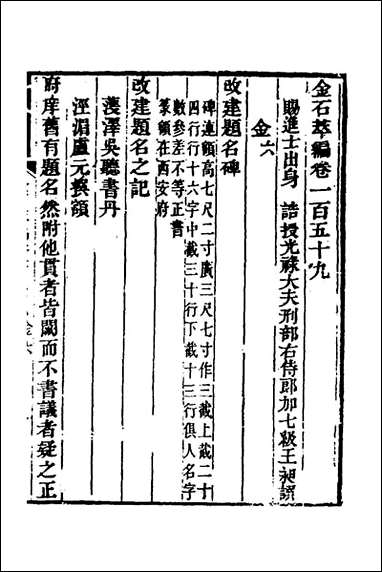 金石萃編卷一百五十九
賜進士出身 誥授光祿大夫刑部右侍郎加七級王昶譔
金六
改建題名碑
碑連額高七尺二寸廣三尺七寸作三截上截二十
四行行十六字中截三十行下截十三行俱人名字
數參差不等正書
篆額在西安府
改建題名之記
濩澤吳聽書丹
涇湄盧元撰額
府庠舊有題名然附他貫者皆闕而不書議者疑之正